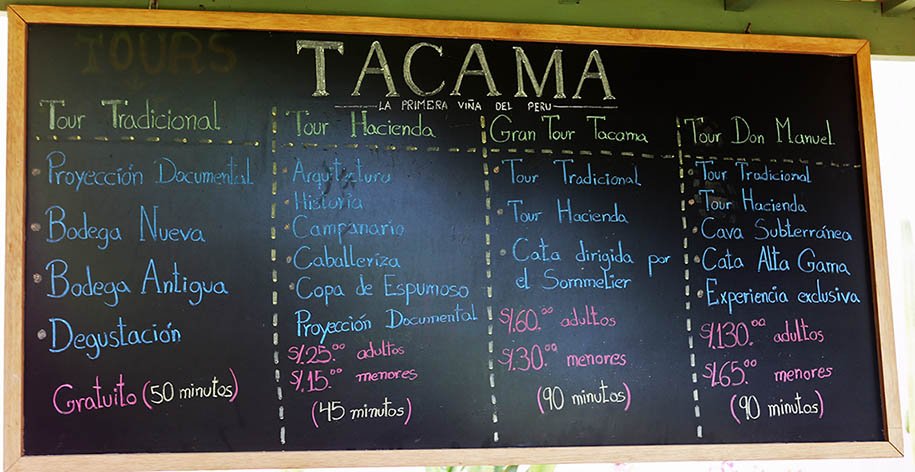 TOURS
TACAMA
LA PRIMERA VIÑA DEL PERU
Tour Tradicional
Proyección Documental
Bodega Nueva
Bodega Antigua
Degustación
Gratuito (50 minutos)
Tour Hacienda
Arquitectura
Historia
Campanario
Caballeriza
Copa de Espumoso
Proyección Documental
S/.25.00 adultos
S/.15.00 menores
(45 minutos)
Gran Tour Tacama
Tour Tradicional
Tour Hacienda
Cata dirigida por
el Sommelier
S/.60.00 adultos
S/.30.00 menores
(90 minutos)
Tour Don Manuel
Tour Tradicional
Tour Hacienda
Cava Subterránea
Cata Alta Gama
Experiencia exclusiva
S/.130.00 adultos
S/.65.00 menores
(90 minutos)